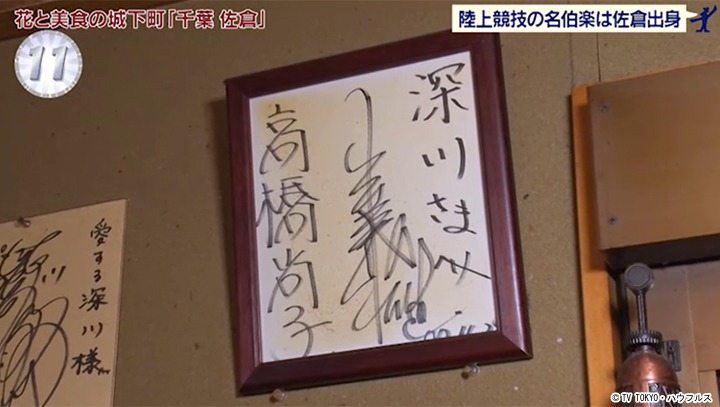 花と美食の城下町「千葉 佐倉」
11
陸上競技の名伯楽は佐倉出身
深川さま
高橋尚子
愛する深川様
© TV TOKYO・ハウフルス